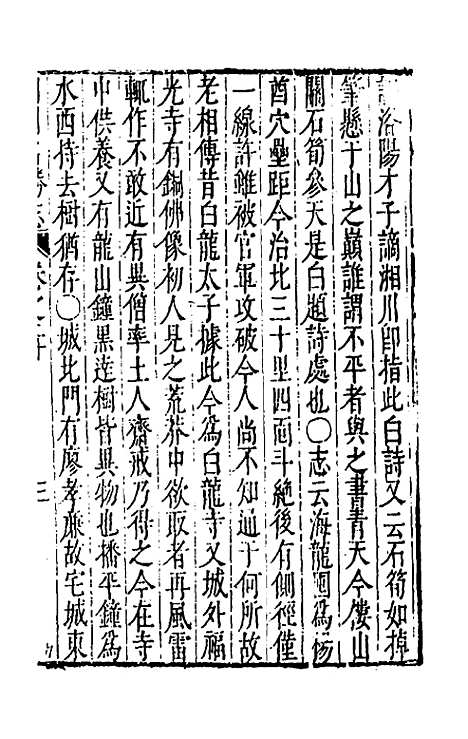 洛陽才子謫湘川即指此白詩又云石筍如掉
筆懸于山之巔誰謂不平者與之書青天今僂山
關石筍參天是白題詩處也○志云海龍囤為楊
酋穴壘距今治北三十里四面斗絕後有側徑僅
一線許雖被官軍攻破今人尚不知通于何所故
老相傳昔白龍太子據此今為白龍寺又城外福
光寺有銅佛像初人見之荒莽中欲取者再風雷
輒作不敢近有異僧率土人齋戒乃得之今在寺
中供養又有龍山鐘黑達樹皆異物也播平鐘為
水西侍去樹猶存○城北門有廖孝廉故宅城東